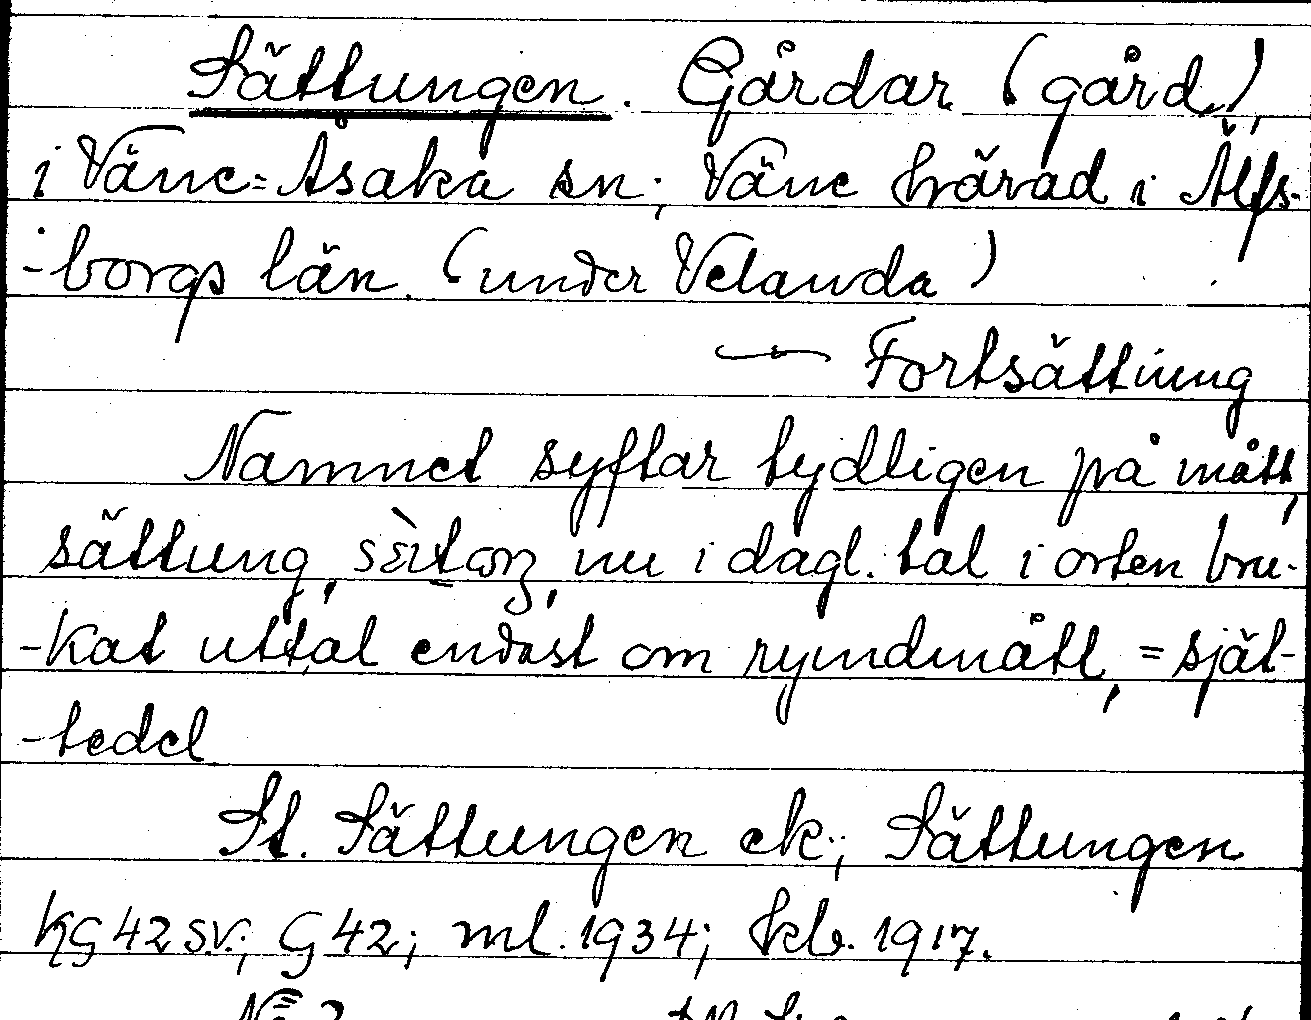 Sättungen. Gårdar (gård)
i Väne-Åsaka sn; Väne härad i Älfs-
-borgs län. (under Velanda)
— Fortsättning
Namnet syftar tydligen på mått,
sättung, nu i dagl. tal i orten bru-
-kat uttal endast om rymdmått, = sjät-
-tedel
St. Sättungen ek; Sättungen
KG 42 sv.; G 42; ml. 1934; kb. 1917.